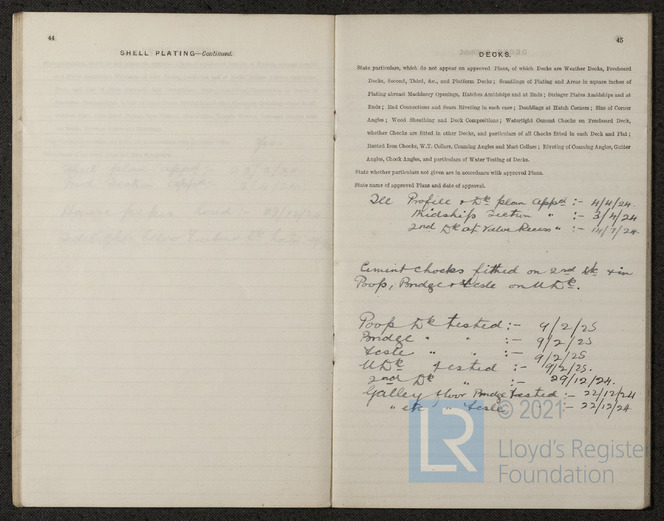 44
SHELL PLATING—Continued.
45
DECKS.
State particulars, which do not appear on approved Plans, of which Decks are Weather Decks, Freeboard
Decks, Second, Third, &c., and Platform Decks; Scantlings of Plating and Areas in square inches of
Plating abreast Machinery Openings, Hatches Amidships and at Ends; Stringer Plates Amidships and at
Ends; End Connections and Seam Riveting in each case; Doublings at Hatch Corners; Size of Corner
Angles; Wood Sheathing and Deck Compositions; Watertight Cement Chocks on Freeboard Deck,
whether Chocks are fitted in other Decks, and particulars of all Chocks fitted in each Deck and Flat;
Riveted Iron Chocks, W.T. Collars, Coaming Angles and Mast Collars; Riveting of Coaming Angles, Gutter
Angles, Chock Angles, and particulars of Water Testing of Decks.
State whether particulars not given are in accordance with approved Plans.
State name of approved Plans and date of approval.
See Profile & Dk plan appd :- 4/4/24.
Midship Section " :- 3/4/24
2nd Dk at Valve Recess " :- /7/24.
Cement chocks fitted on 2nd Dk & in
Poop, Bridge & Fcsle on U Dk.
Poop Dk tested :- 9/2/25
Bridge " " :- 9/2/25
Fcsle " " :- 9/2/25
U Dk tested :- 9/2/25.
2nd Dk " :- 29/12/24.
Galley floor Bridge tested :- 22/12/24
" etc Fcsle :- 22/12/24
© 2021
LR
Lloyd's Register
Foundation